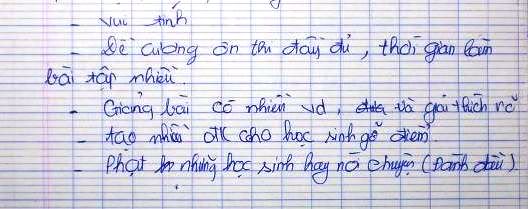 - vui tính
- Đề cương ôn thi đầy đủ, thời gian làm
bài tập nhiều.
- Giảng bài có nhiều vd, và giải thích rõ
- tạo nhiều đk cho học sinh gỡ điểm.
- Phạt những học sinh hay nó chuyện (Đánh dấu).